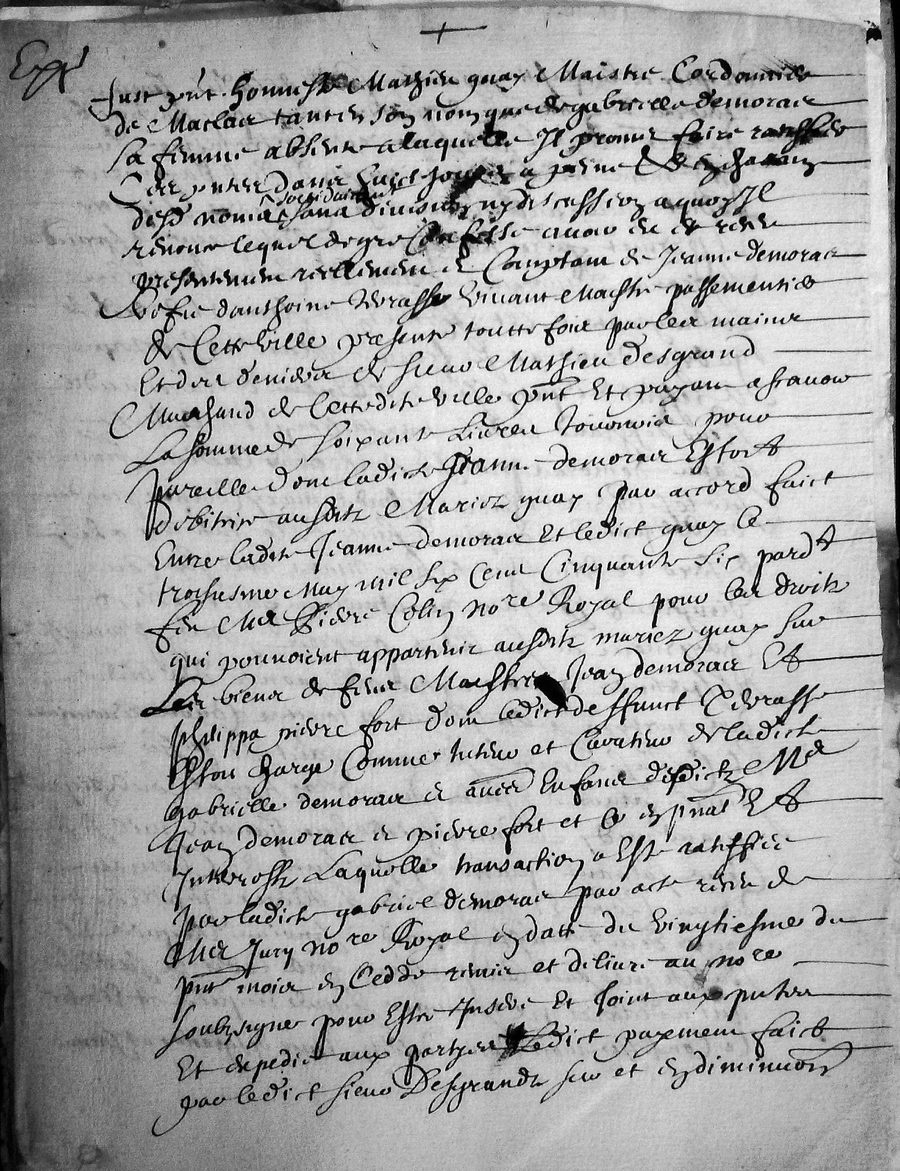 +
Expé
Fust pnt honneste Mathieu quay Maistre Cordonnier
de tant en son nom que de gabrielle demorair
sa femme absente a laquelle Il promet faire ratiffier
ces pntes dans huict jours a peine
solidairement
desd noms sans division ny discussion a quoy Il
renonce lequel de gre Confesse avoir eu et receu
presentement reellement et Comptant de Jeanne demorair
vefve danthoine verasse vivant Maistre passementier
de Cette ville presente touttefois par les mains
Et des deniers de sieur Mathieu desgrand
Marchand de Cette dite ville pnt Et payant a scavoir
La somme de soixante Livres Tournois pour
pareille dont ladicte Jeanne demorair Estoit
debitrice ausdits Mariez quay par accord faict
Entre ladite Jeanne demorair Et ledict quay le
troisiesme May mil six Cent Cinquante six pardt
feu Me Pierre Colin nore Royal pour les droits
qui pouvoient appartenir ausdits mariez quay sur
Les biens de feus Maistres Jean demorair Et
phelippa pierrefort dont ledict deffunct verasse
Estoit charge Comme tuteur et Curateur de ladicte
gabrielle demorair et aues Enfans desdictz Me
Jean demorair et pierrefort et Et
Laquelle transaction a Este ratiffiee
par ladicte gabriel demorair par acte receu de
Me Jury nore Royal en datte du vingtiesme du
pnt mois en Cedde remise et delivre au nore
soubsigne pour Estre Insere Et Joint aux pntes
Et expedie aux partyes Ledict payement faict
par ledict sieur Desgrand sur et en diminuon